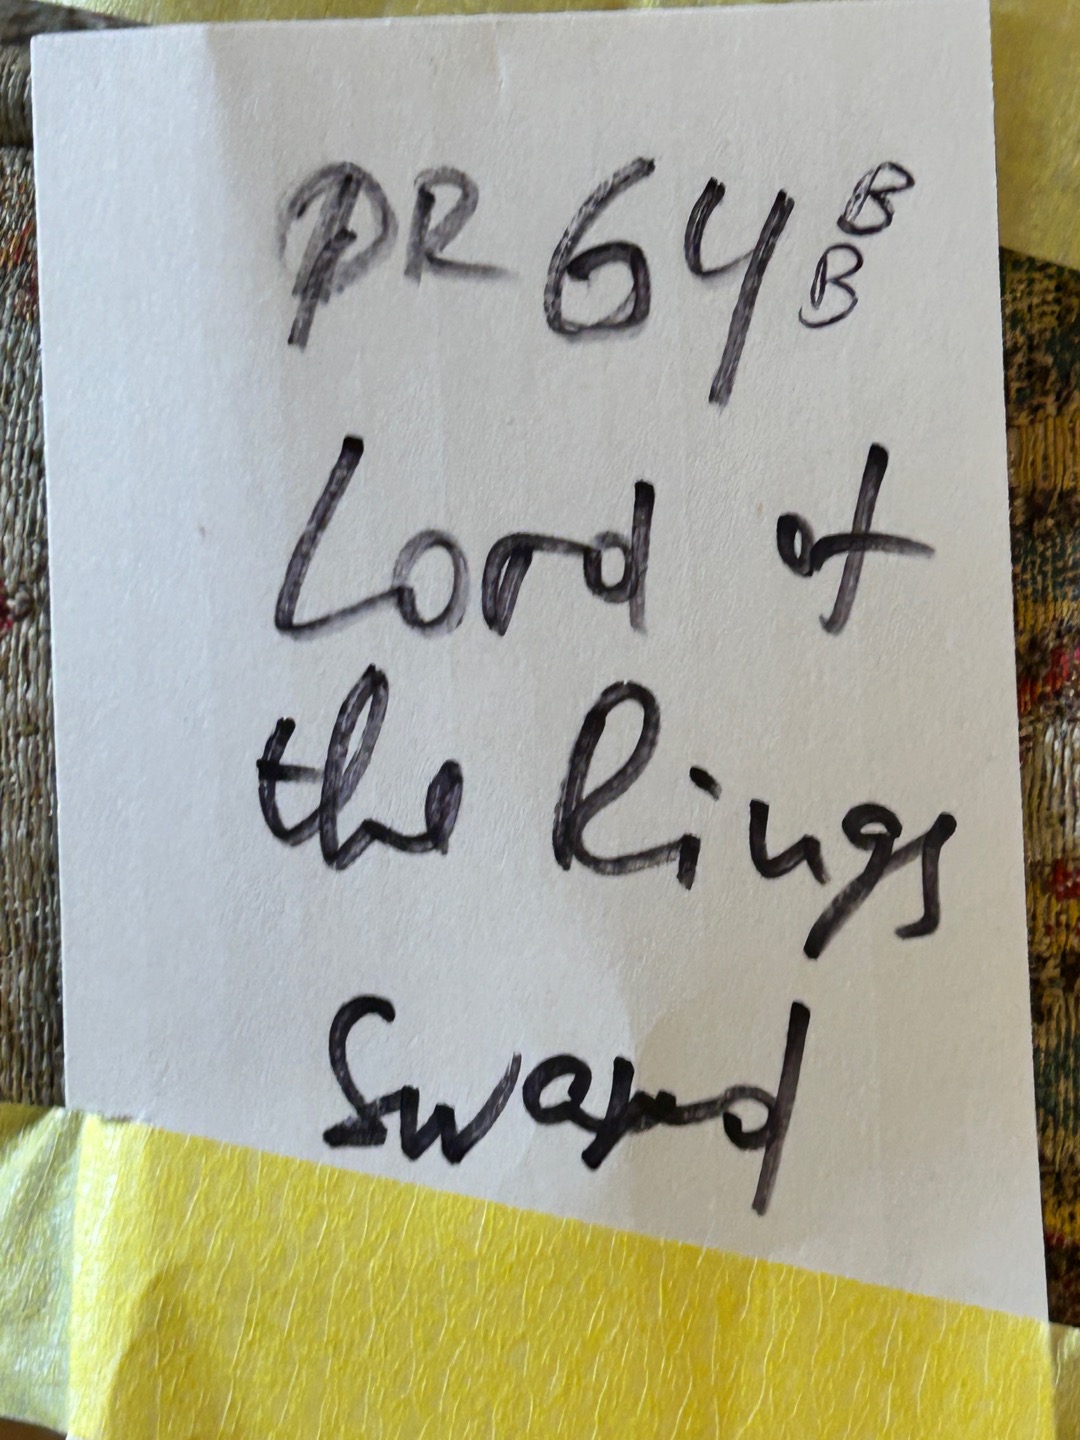 PR 64 B
B
Lord of
the Rings
Sward